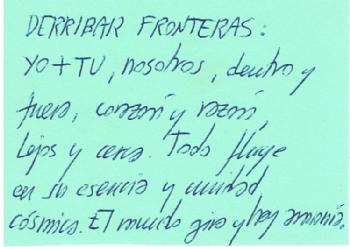 DERRIBAR FRONTERAS:
YO+TU, nosotros, dentro y
fuera, corazón y razón,
Lejos y cerca. Todo fluye
en su esencia y unidad
cósmica. El mundo gira y hay armonía.